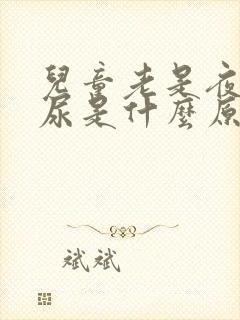 兒童老是夜
尿是什麼原
斌斌